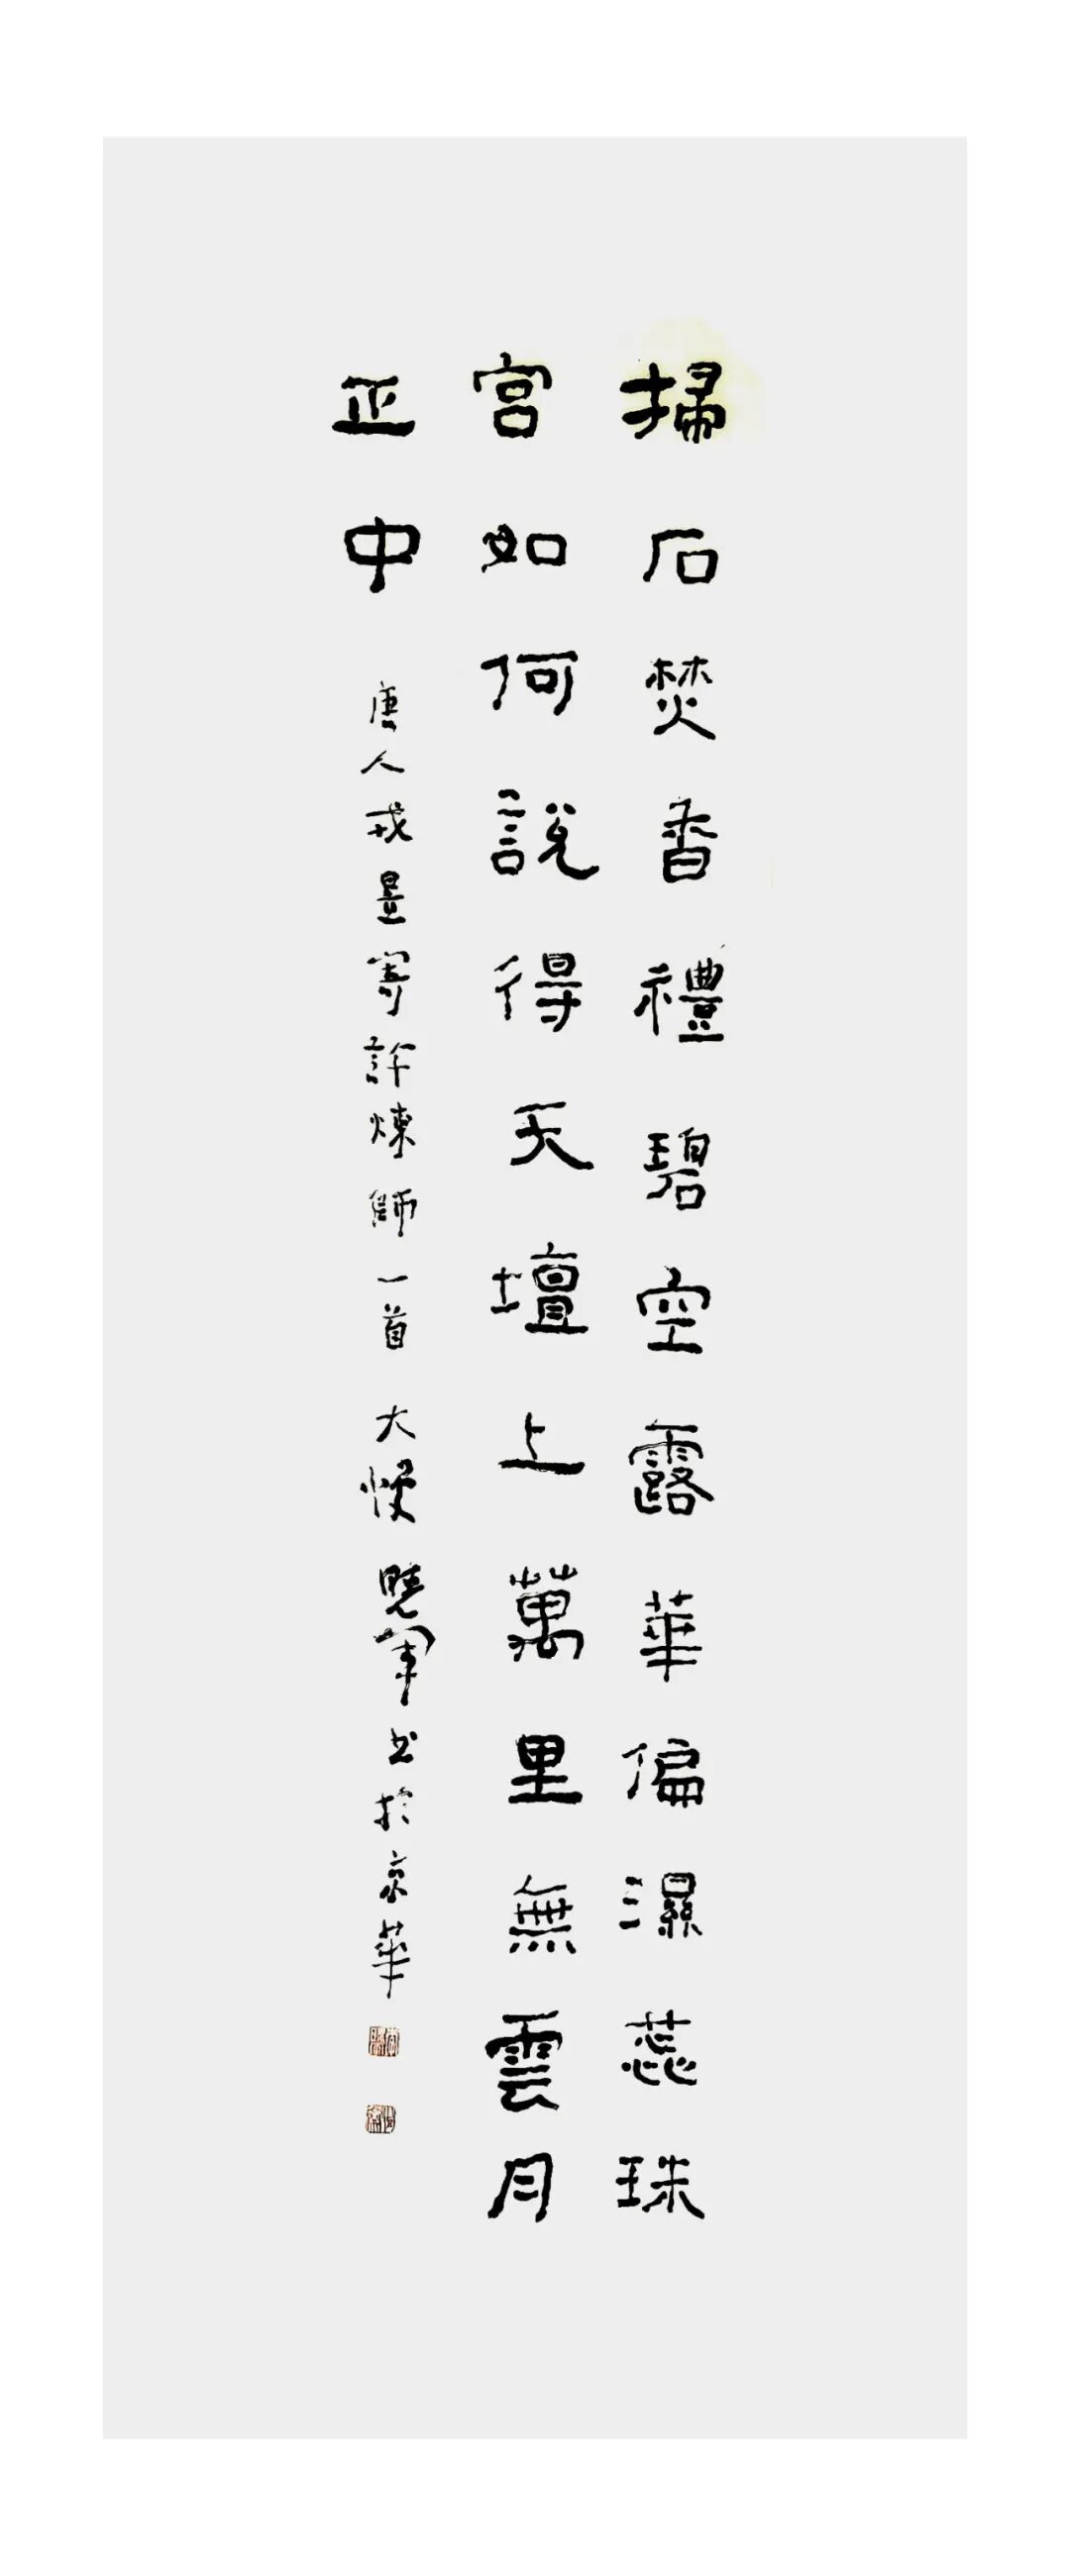 掃石焚香禮碧空露華偏濕蕊珠
宮如何說得天壇上萬里無雲月
正中
唐人戎昱寄許煉師一首 大愩 曉軍书於京華